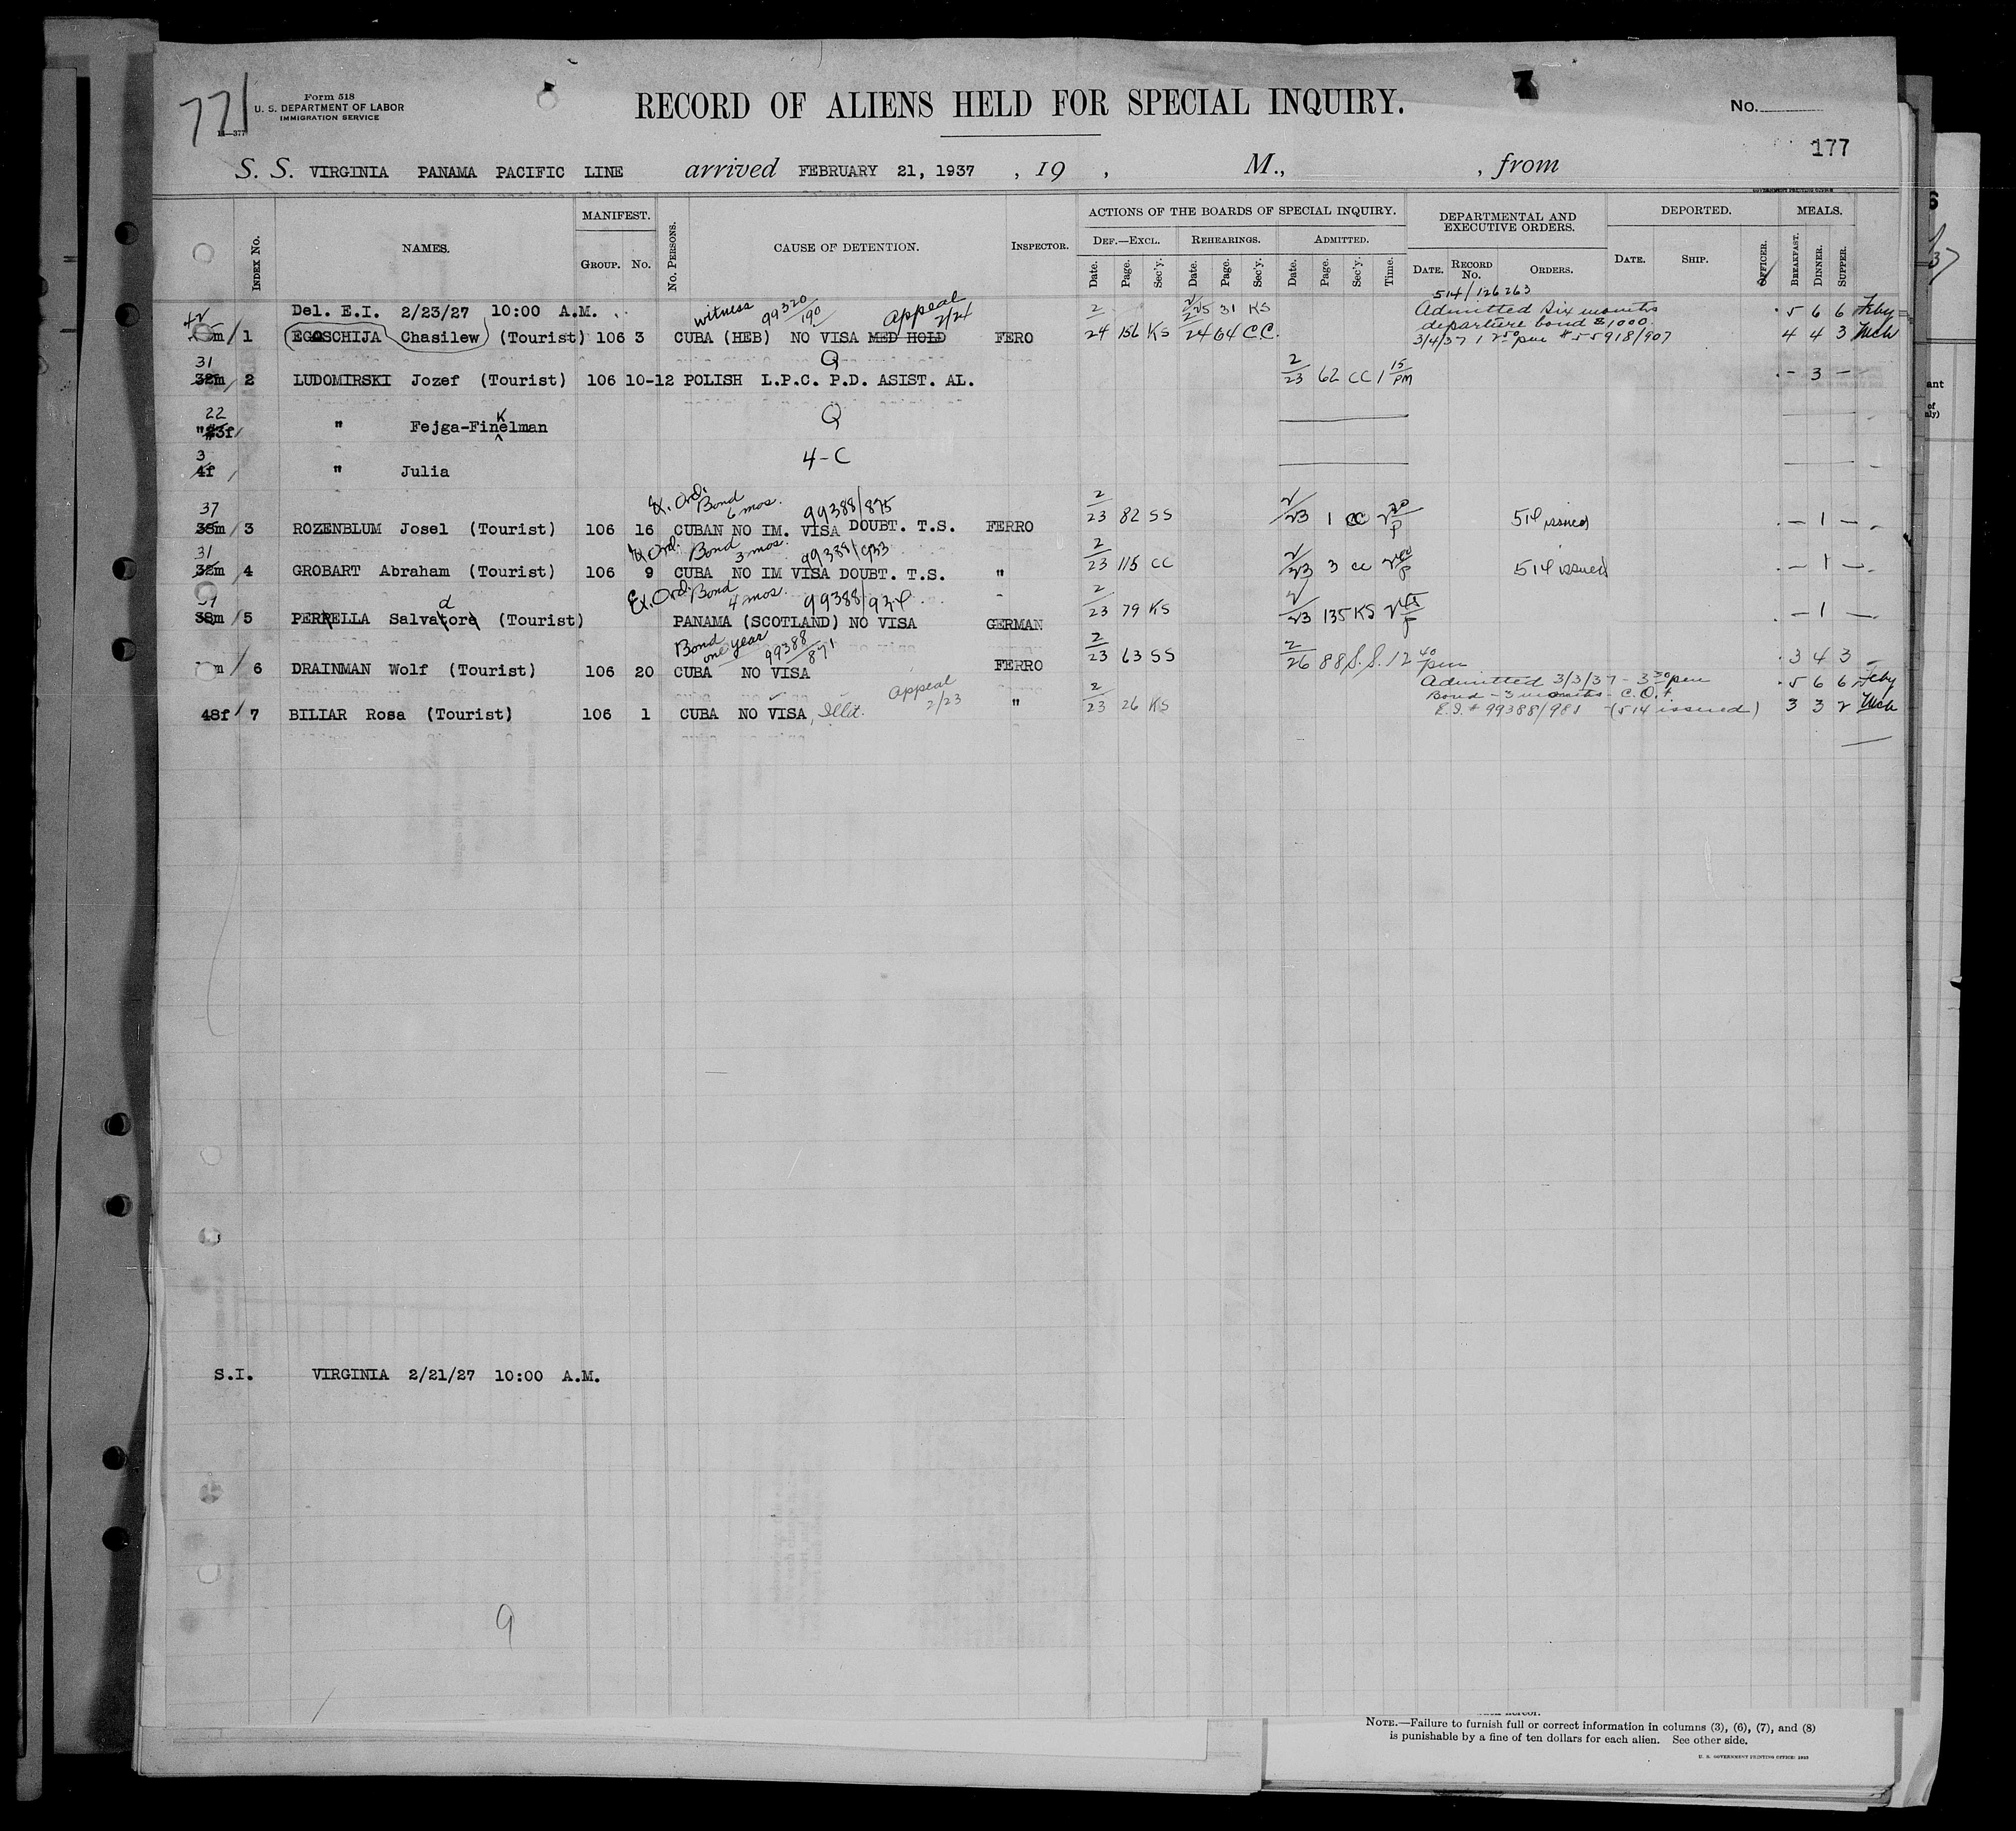 771
Form 518
U. S. DEPARTMENT OF LABOR
IMMIGRATION SERVICE
14—377
RECORD OF ALIENS HELD FOR SPECIAL INQUIRY.
No.
177
S. S. VIRGINIA PANAMA PACIFIC LINE arrived FEBRUARY 21, 1937 , 19 , M., , from
GOVERNMENT PRINTING OFFICE
INDEX No. NAMES. MANIFEST. GROUP. No. No. PERSONS. CAUSE OF DETENTION. INSPECTOR. ACTIONS OF THE BOARDS OF SPECIAL INQUIRY. DEF.—EXCL. Date. Page. Sec'y. REHEARINGS. Date. Page. Sec'y. ADMITTED. Date. Page. Sec'y. Time. DEPARTMENTAL AND EXECUTIVE ORDERS. DATE. RECORD No. ORDERS. DEPORTED. DATE. SHIP. OFFICER. MEALS. BREAKFAST. DINNER. SUPPER.
514/126263
Del. E.I. 2/23/27 10:00 A.M. witness 99320/190 appeal 2/24 2/25 31 KS Admitted Six months 5 6 6 Feby
departure bond $1000
m/ 1 EGOSCHIJA Chasilew (Tourist) 106 3 CUBA (HEB) NO VISA MED HOLD FERO 2/24 156 KS 2/24 64 C.C. 3/4/37 1 50 pm #55918/907 4 4 3 Mch
31 Q
32m/ 2 LUDOMIRSKI Jozef (Tourist) 106 10-12 POLISH L.P.C. P.D. ASIST. AL. 2/23 62 CC 1 15 PM - 3 -
22
"23f/ " Fejga-Finkelman Q
3
4f / " Julia 4-C
37 Ex. Ord. Bond 6 mos. 99388/875
38m/ 3 ROZENBLUM Josel (Tourist) 106 16 CUBAN NO IM. VISA DOUBT. T.S. FERRO 2/23 82 SS 2/23 1 CC 2 30 P 514 issued - 1 -
31 Ex Ord. Bond 3 mos. 99388/933
32m/ 4 GROBART Abraham (Tourist) 106 9 CUBA NO IM VISA DOUBT. T.S. " 2/23 115 CC 2/23 3 CC P 514 issued - 1 -
Ex. Ord. Bond 4 mos. 99388/934
38m/ 5 PERRELLA Salvatore (Tourist) PANAMA (SCOTLAND) NO VISA GERMAN 2/23 79 KS 2/23 135 KS 2 45 P - 1 -
Bond one year 99388/871
m/ 6 DRAINMAN Wolf (Tourist) 106 20 CUBA NO VISA FERRO 2/23 63 SS 2/26 88 S.S. 12 40 pm 3 4 3
appeal 2/23 Admitted 3/3/37 - 3 30 pm 5 6 6 Feby
Bond - 3 months - C.O.
48f/ 7 BILIAR Rosa (Tourist) 106 1 CUBA NO VISA, Illit. " 2/23 26 KS E.I. # 99388/981 - (514 issued) 3 3 2 Mch
S.I. VIRGINIA 2/21/27 10:00 A.M.
9
NOTE.—Failure to furnish full or correct information in columns (3), (6), (7), and (8)
is punishable by a fine of ten dollars for each alien. See other side.
U. S. GOVERNMENT PRINTING OFFICE: 1935